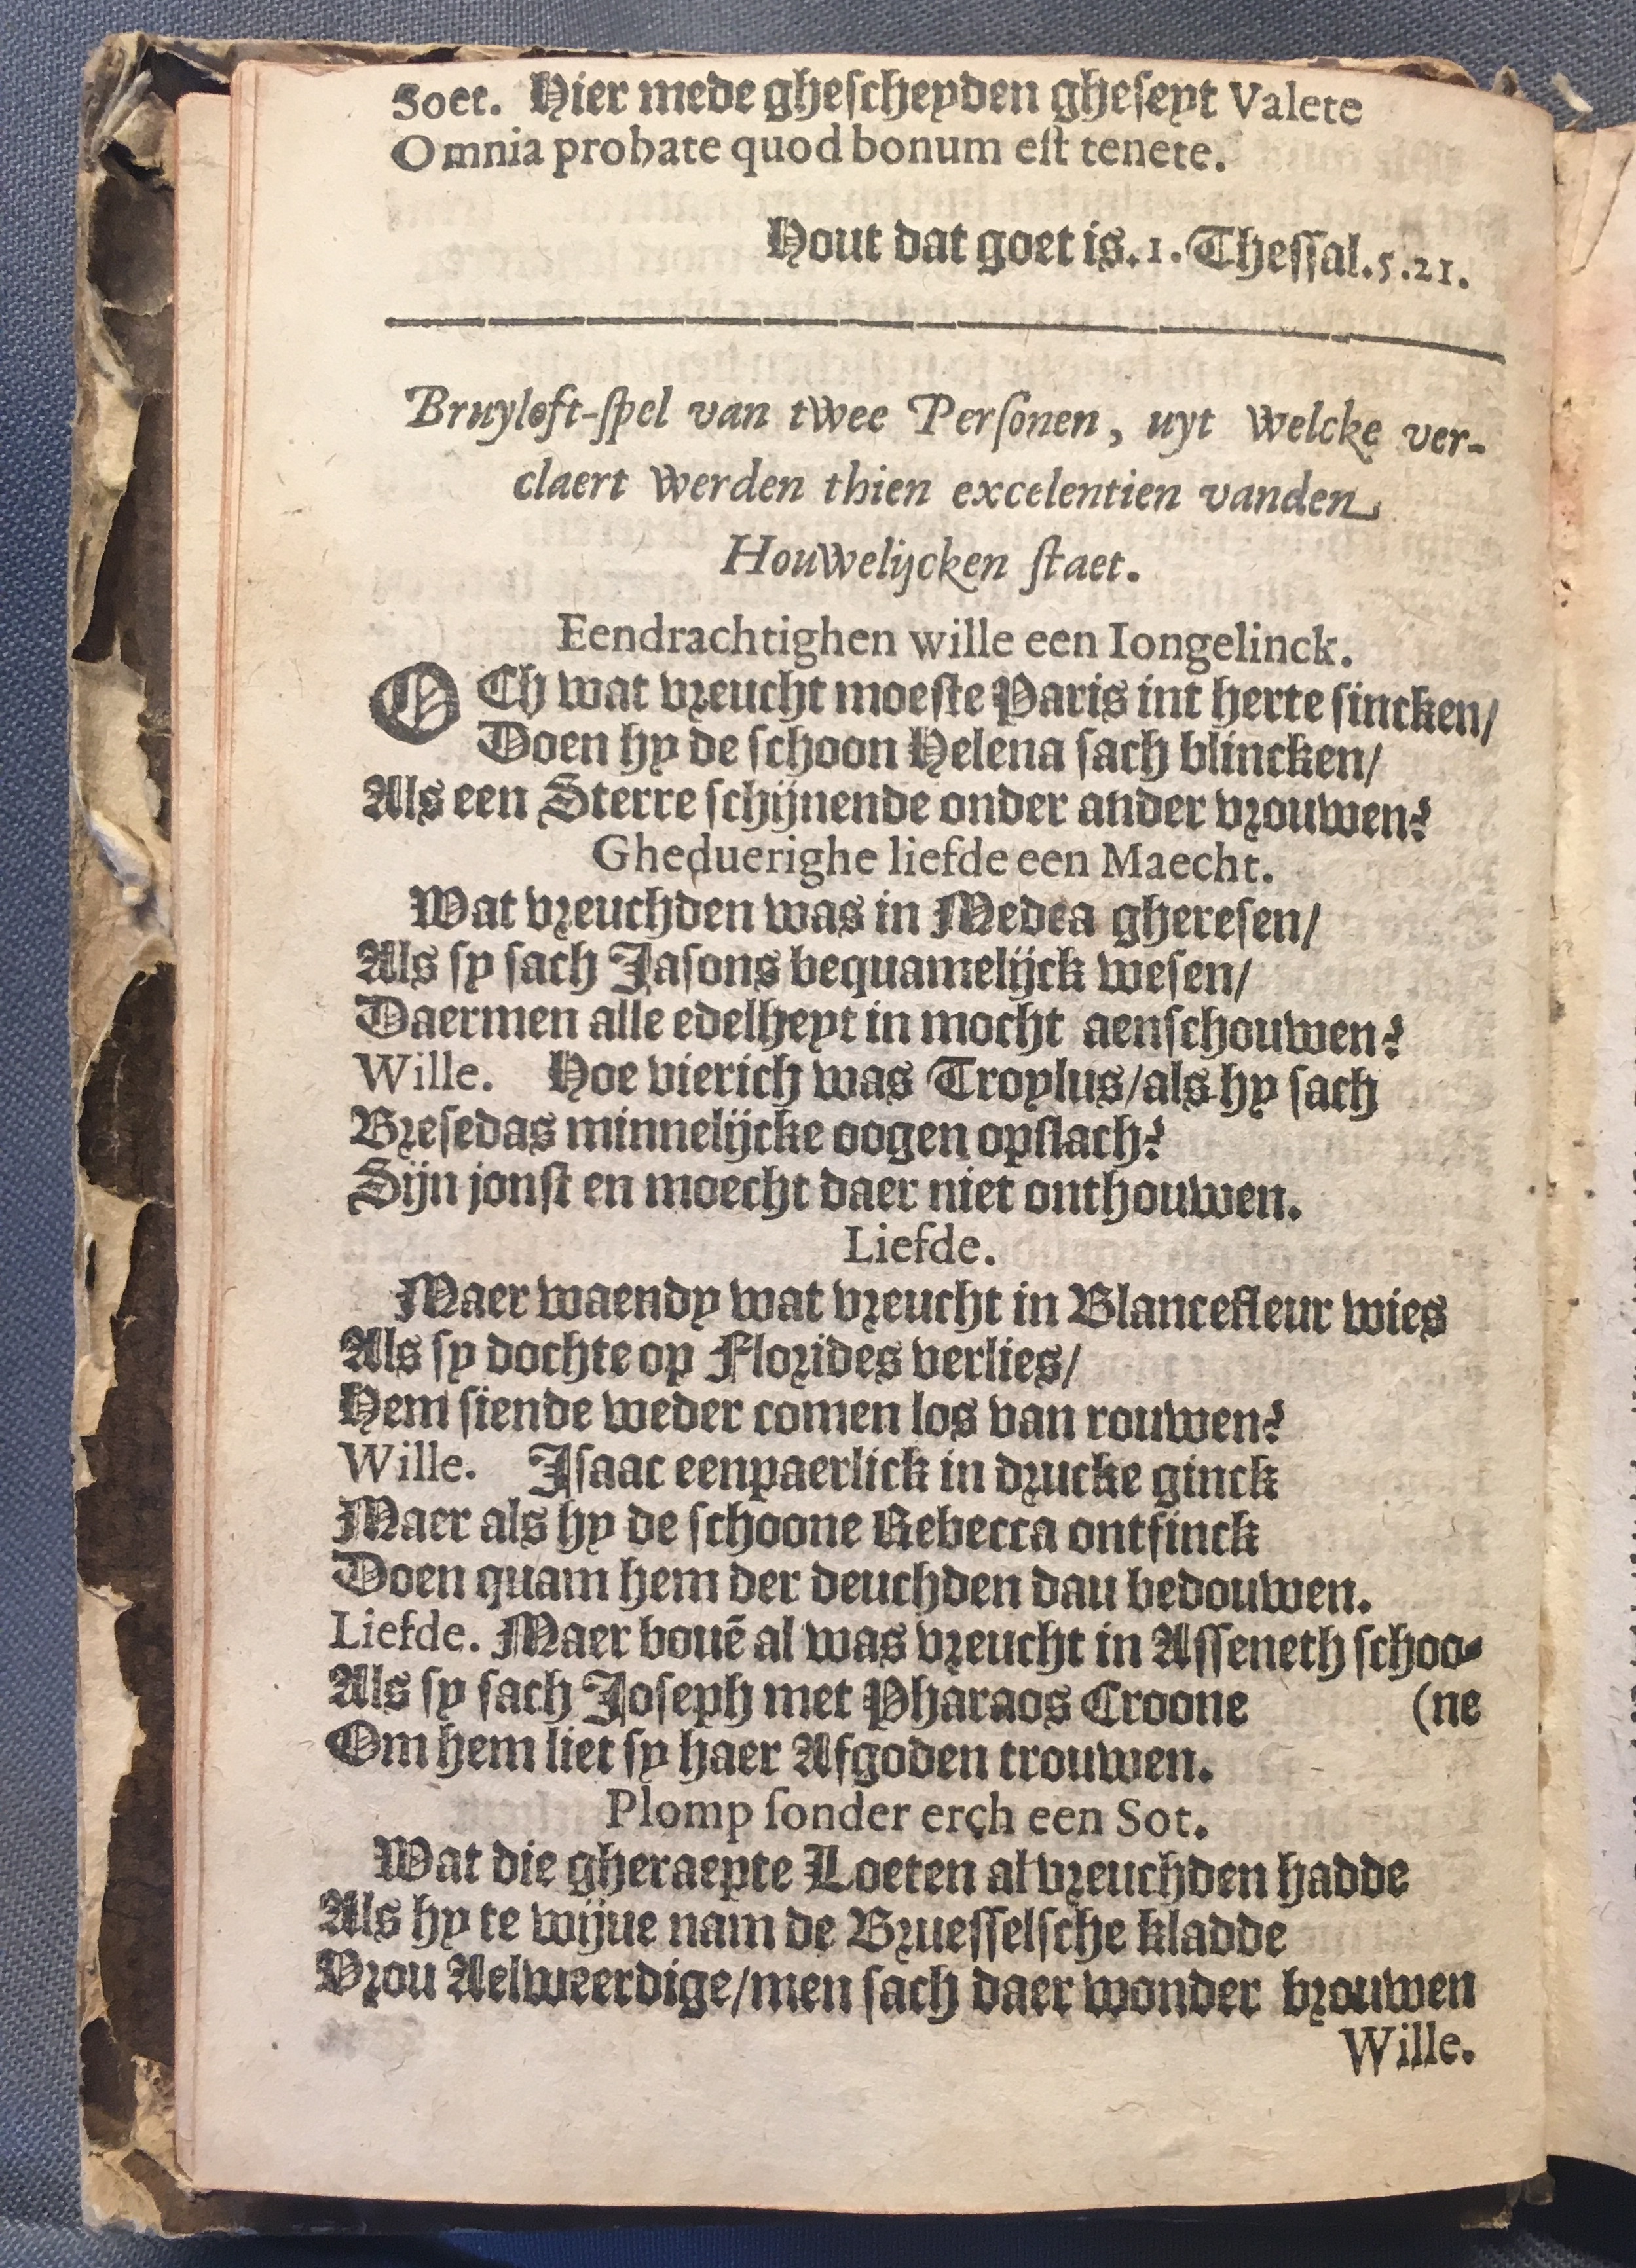 Soet. Hier mede ghescheyden gheseyt Valete
Omnia probate quod bonum est tenete.
Hout dat goet is. 1. Thessal. 5. 21.
Bruyloft-spel van twee Personen, uyt welcke ver-
claert werden thien excelentien vanden
Houwelijcken staet.
Eendrachtighen wille een Iongelinck.
OCh wat vreucht moeste Paris int herte sincken/
Doen hy de schoon Helena sach blincken/
Als een Sterre schijnende onder ander vrouwen?
Gheduerighe liefde een Maecht.
Wat vreuchden was in Medea gheresen/
Als sy sach Jasons bequamelijck wesen/
Daermen alle edelheyt in mocht aenschouwen?
Wille. Hoe vierich was Troylus/als hy sach
Bresedas minnelijcke oogen opslach?
Sijn jonst en moecht daer niet onthouwen.
Liefde.
Maer waendy wat vreucht in Blancefleur wies
Als sy dochte op Florides verlies/
Hem siende weder comen los van rouwen?
Wille. Isaac eenpaerlick in drucke ginck
Maer als hy de schoone Rebecca ontfinck
Doen quam hem der deuchden dau bedouwen.
Liefde. Maer bouē al was vreucht in Asseneth schoo-
Als sy sach Joseph met Pharaos Croone (ne
Om hem liet sy haer Afgoden trouwen.
Plomp sonder erch een Sot.
Wat die gheraepte Loeten al vreuchden hadde
Als hy te wijue nam de Bruesselsche kladde
Vrou Aelweerdige/men sach daer wonder brouwen
Wille.